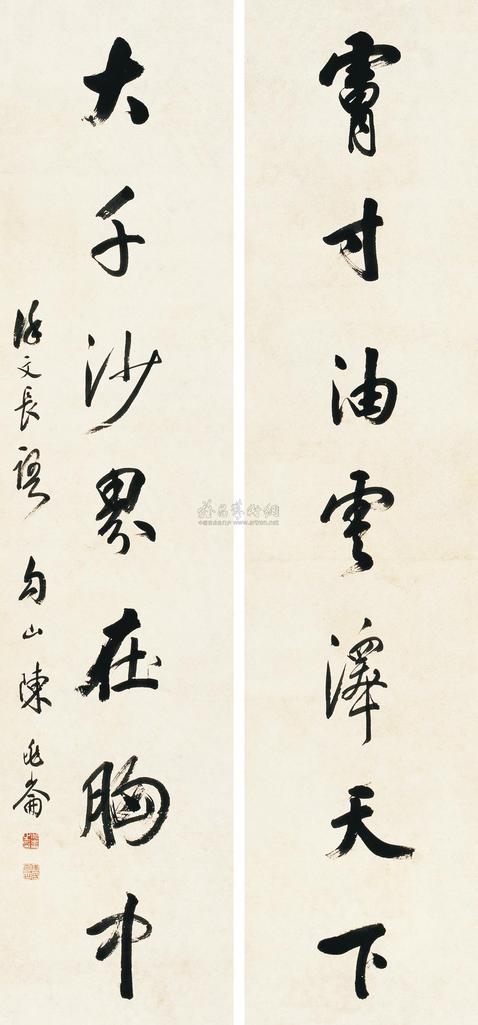 膚寸油雲澤天下
大千沙界在胸中
徐文長語 句山陳兆崙